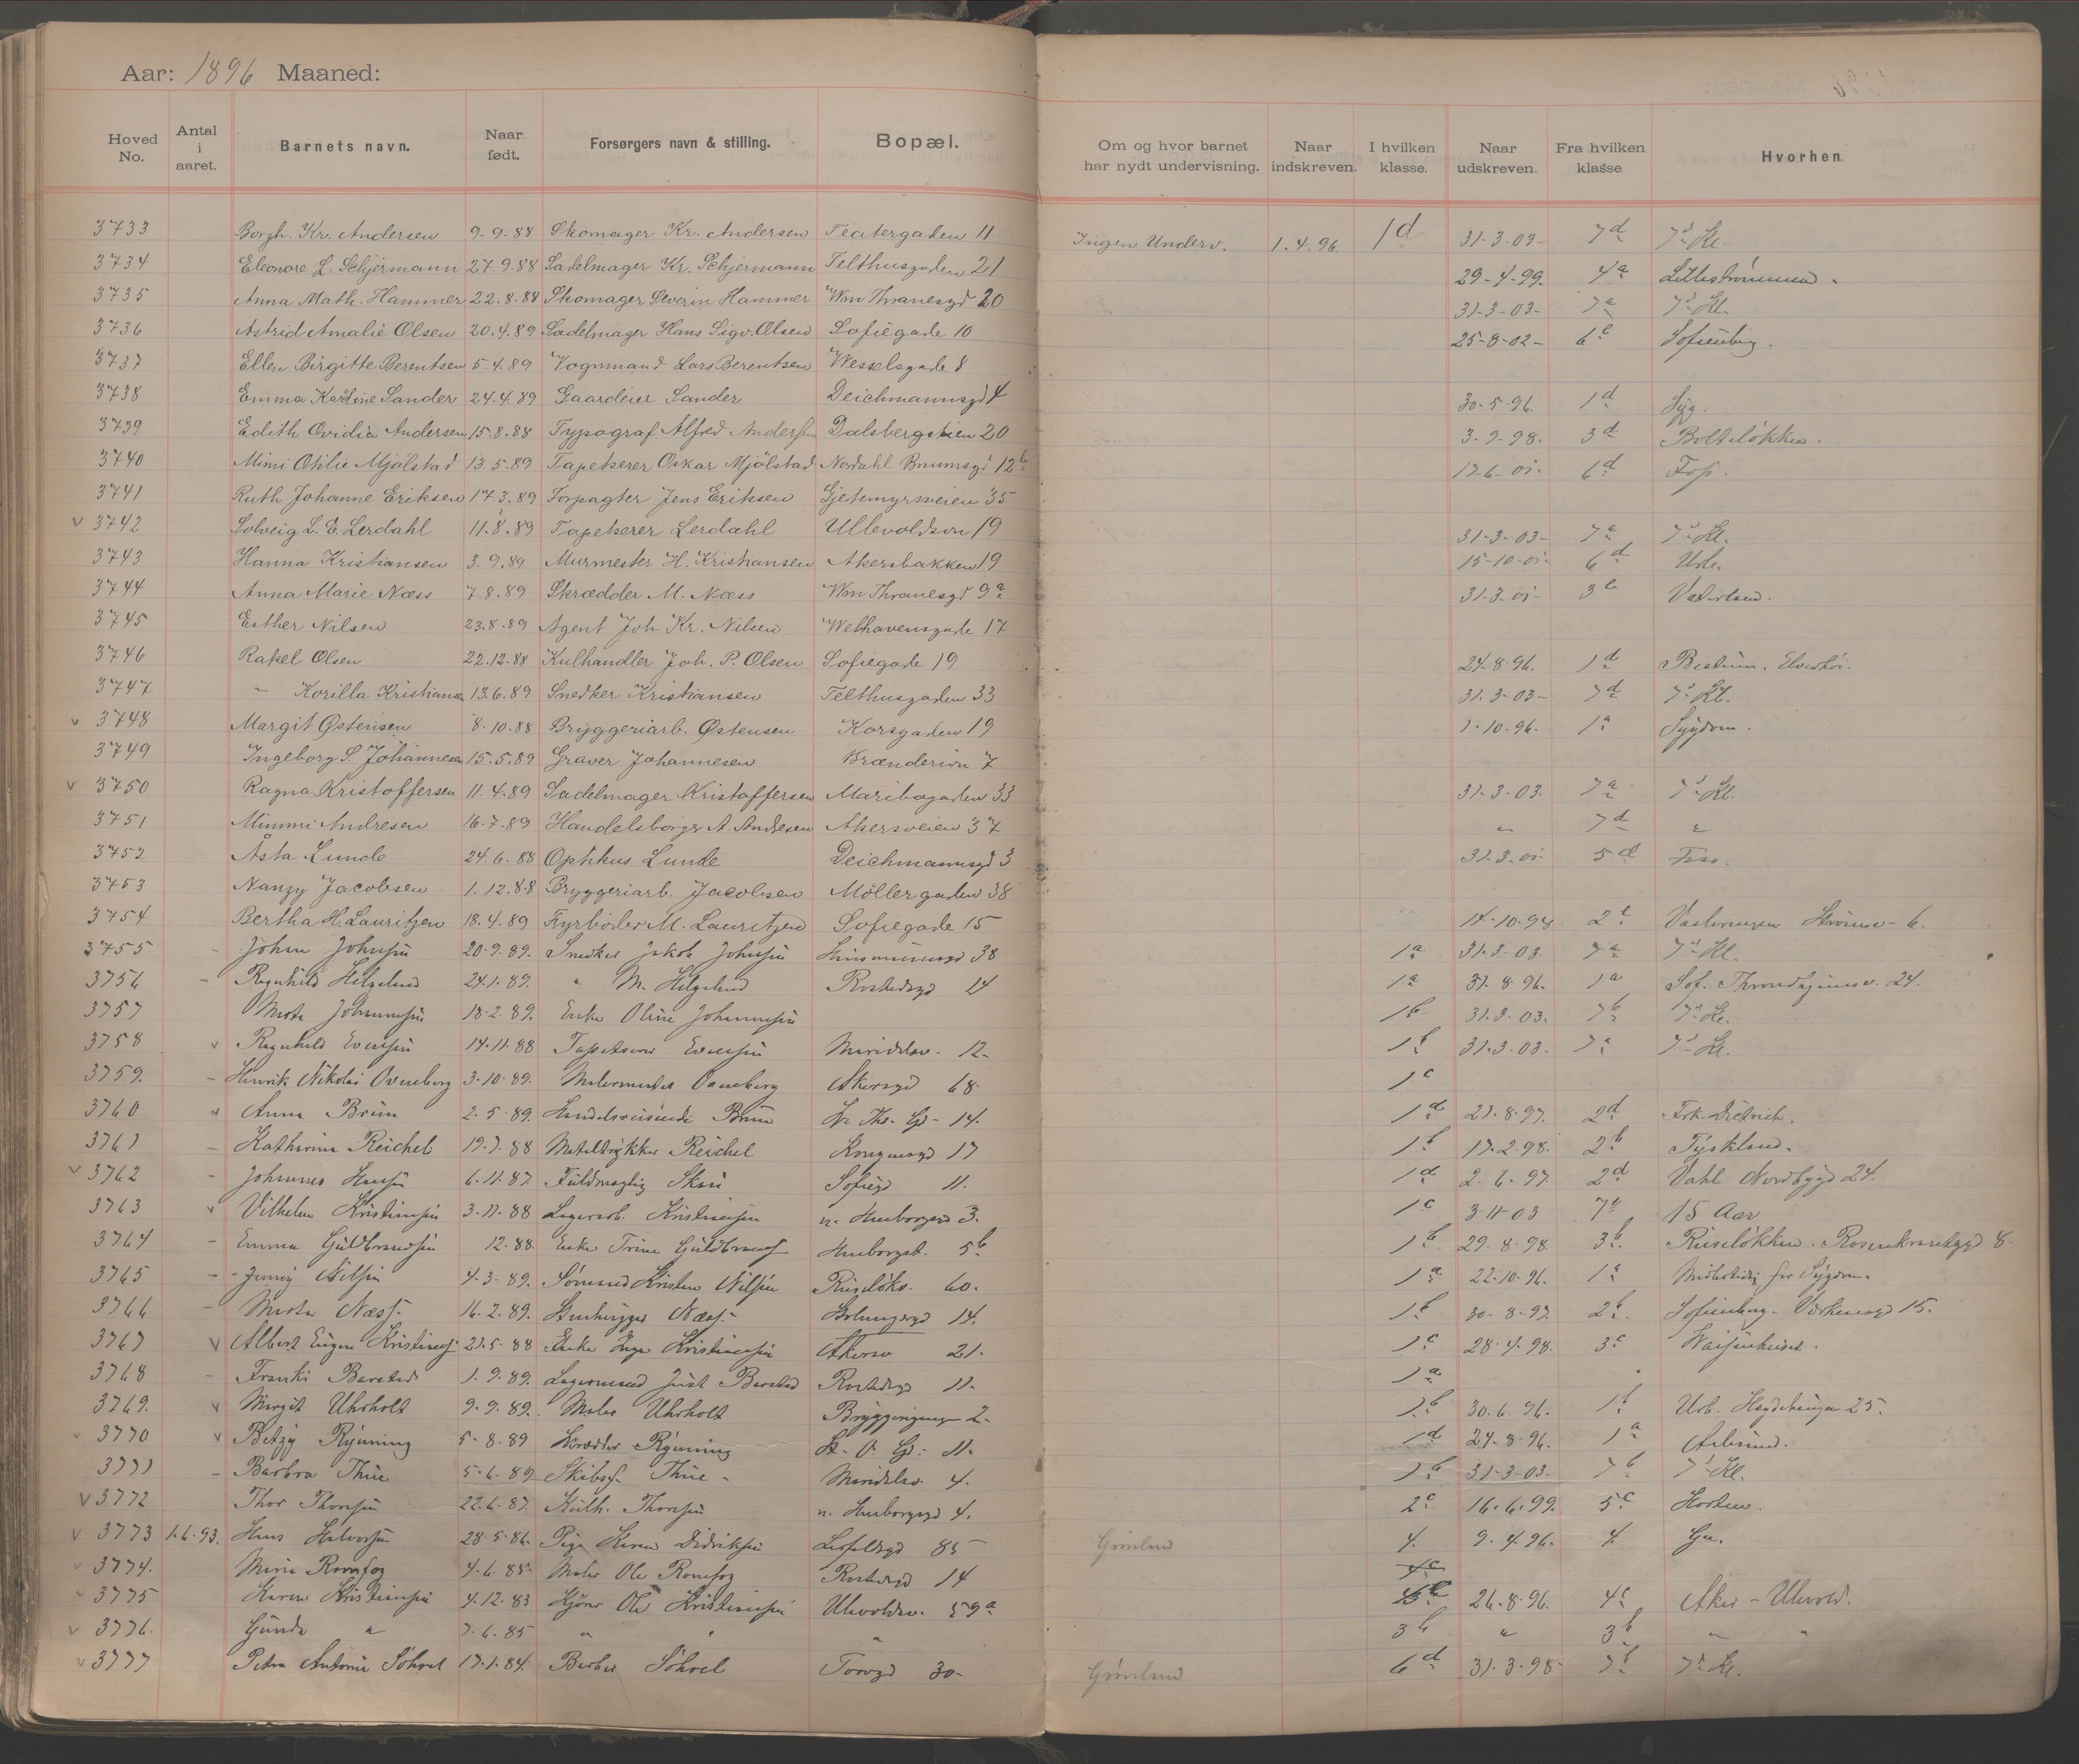 Aar: 1896 Maaned:
Hoved No. Antal i aaret. Barnets navn. Naar født. Forsørgers navn & stilling. Bopæl. Om og hvor barnet har nydt undervisning. Naar indskreven. I hvilken klasse. Naar udskreven. Fra hvilken klasse Hvorhen.
3733 Borgh. Kr. Andersen 9-9-88 Skomager Kr. Andersen Teatergaden 11 Ingen Underv. 1.4.96 1d 31-3-03- 7d 7d Kl.
3734 Eleonore L. Schjermann 27.9.88 Sadelmager Kr. Schjermann Telthusgaden 21 29-4-99. 4a Lillestrømmen.
3735 Anna Math. Hammer 22.8.88 Skomager Severin Hammer Wm Thranesgd 20 31-3-03- 7a 7d Kl.
3736 Astrid Amalie Olsen 20.4.89 Sadelmager Hans Sigv. Olsen Sofiegade 10 25-8-02- 6 Sofienberg.
3737 Ellen Birgitte Berentsen 5.4.89 Vognmand Lars Berentsen Wesselsgade 8
3738 Emma Karoline Sander 24.4.89 Gaardeier Sander Deichmannsgd 4 30-5-96. 1d Syg.
3739 Edith Ovidia Andersen 15.8.88 Typograf Alfred Andersen Dalsbergstien 20 3-9-98. 3d Bolteløkken.
3740 Mimi Othilie Mjølstad 13.5.89 Tapetserer Oskar Mjølstad Nordahl Brunsgd 12b 17-6-01. 6d Foss.
3741 Ruth Johanne Eriksen 17.3.89 Forpagter Jens Eriksen Gjetemyrsveien 35
v 3742 Solveig L. E. Lerdahl 11.8.89 Tapetserer Lerdahl Ullevoldsvn 19 31-3-03- 7a 7d Kl.
3743 Hanna Kristiansen 3.9.89 Murmester H. Kristiansen Akersbakken 19 15-10-01- 6d Ude.
3744 Anna Marie Næss 7.8.89 Skrædder M. Næss Wm Thranesgd 9a 31-3-01- 3b Vaterland.
3745 Esther Nilsen 23.8.89 Agent Joh Kr. Nilsen Welhavensgade 17
3746 Rakel Olsen 22.12.88 Kulhandler Joh. P. Olsen Sofiegade 19 24-8-96. 1d Bestum.
3747 " Korilla Kristiansen 13.6.89 Snedker Kristiansen Telthusgaden 33 31.3-03- 7d 7d Kl.
v 3748 Margit Østensen 8.10.88 Bryggeriarb. Østensen Korsgaden 19 1-10.96. 1a Sygdom.
3749 Ingeborg S. Johannesen 15.5.89 Graver Johannesen Brænderivn 7
v 3750 Ragna Kristoffersen 11.4.89 Sadelmager Kristoffersen Maribogaden 33 31-3-03. 7a 7d Kl.
3751 Mimmi Andresen 16.7.89 Handelsborgr A. Andresen Akersveien 37 " 7d "
3752 Åsta Lunde 24.6.88 Optikus Lunde Deichmannsgd 3 31.3.01- 5d Foss.
3753 Nanzy Jacobsen 1.12.88 Bryggeriarb. Jacobsen Møllergaden 38
3754 Bertha H. Lauritzen 18.4.89 Fyrbøder M. Lauritzen Sofiegade 15 14-10-98 2 6.
3755 Johan Johnsen 20-9.89. Snedker Jakob Johnsen 38 1a 31.3-03. 7a 7d Kl.
3756 Ragnhild Helgelund 24.1.89. " M. Helgelund Rostedsgd 14 1a 31.8.96. 1a Sof. Throndhjemsv. 24.
3757 Marta Johannsen 18.2.89. Enke Oline Johannsen 1b 31.3-03. 7b 7d Kl.
3758 v Ragnhild Evensen 14.11.88 Tapetserer Evensen Maridalsv. 12- 1b 31.3-03- 7a 7d Kl.
3759. Henrik Nikolai Overberg 3-10-89. Malermester Overberg Akersgd 68 1c
3760 v Anna Brun 2-5-89. Handelsreisende Brun 14. 1d 21.8-97. 2d Frk. Dietrich.
3761 Katharina Reichel 19.7.88 Metaltrykker Reichel Kongensgd 17 1b 17.2.98. 2b Tyskland.
v 3762 Johannes Hansen 6.11.87 Fuldmægtig Skau Sofiegd 11. 1d 2-6-97. 2d Vahl Nordbygd 24.
3763 v Vilhelm Kristiansen 3-11-88 Lagerarb. Kristiansen 3. 1c 3-11-03 7 15 Aar
3764 Emma Guldbrandsen 12.88. Enke Trine Guldbrands 5b 1b 29.8-98. 3b. Ruseløkken. Rosenkrantzgd 8.
3765 Jenny Nilsen 4.3-89. Sømand Kristen Nilsen Ruseløkv. 60. 1a 22-10-96. 1a Midlertidig for Sygdom.
3766 Marta Næss 16-2.89. Stenhugger Næss 14. 1b 30-8-97. 2b. Sofienberg- 15.
3767 v Albert Eugen Kristians 21.5-88 Enke Inga Kristiansen Akersv 21. 1c 28.4.98. 3c Waisenhuset.
3768 Franki Barstad 1.9.89. Lagermand Just Barstad Rostedsgd 11. 1a
3769. v Margit Uhrholt 9-9.89. Maler Uhrholt 2. 1b 30.6.96. 1b Urb. 25.
v 3770 v Betzy Rynning 5-8.89 Skrædder Rynning St. O. Gd. 11. 1d 24-8-96. 1a Aalesund.
3771 Barbra Thue 5-6-89 Skibsf. Thue Maridalsv. 4. 1b 31-3-03. 7b 7d Kl.
v 3772 Thor Thoresen 22.6.87. Kulh. Thoresen 4. 2c 16.6.99. 5c Horten.
v 3773 1.6.93. Hans Halvorsen 28-5-86. Pige Karen Didriksen 85 Grønland 4. 9.4.96. 4.
3774. Marie Romfog 4.6.85 Maler Ole Romfog Rostedsgd 14
3775 Karen Kristiansen 4.12.83 Kjører Ole Kristiansen Ulevoldsv. 59a 26.8.96. 4c Aker - Ulevold.
v 3776. Gunda " 7.6.85 " " " 3b " 3b " "
3777 Petra Antonie Søhoel 17.1.84. Barber Søhoel Torvgd 30- Grønland 6d 31.3.98- 7b 7d Kl.